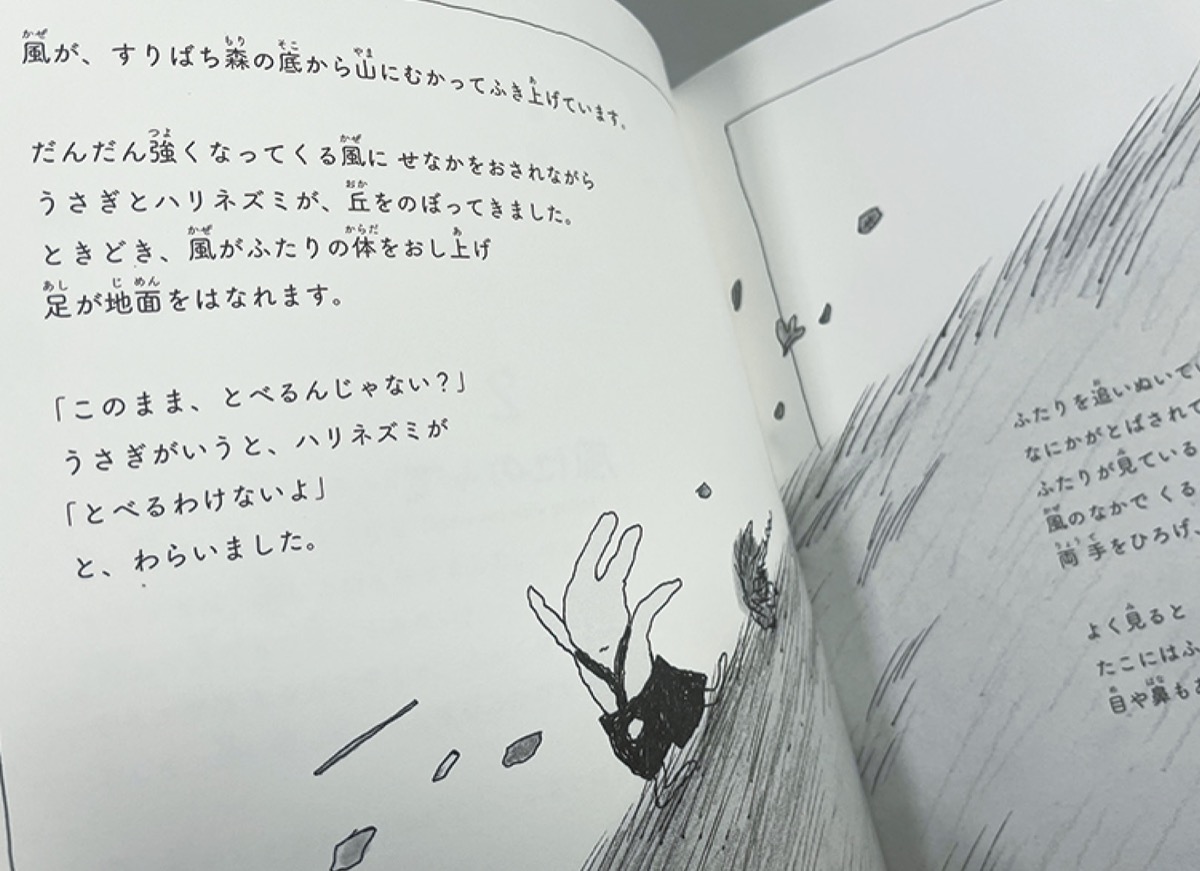 風が、すりばち森の底から山にむかってふき上げています。
だんだん強くなってくる風に せなかをおされながら
うさぎとハリネズミが、丘をのぼってきました。
ときどき、風がふたりの体をおし上げ
足が地面をはなれます。
「このまま、とべるんじゃない？」
うさぎがいうと、ハリネズミが
「とべるわけないよ」
と、わらいました。
ふたりを追いぬいでい
なにかがとばされて
ふたりが見ている
風のなかで くる
両手をひろげ、
よく見ると
たこにはふ
目や鼻も